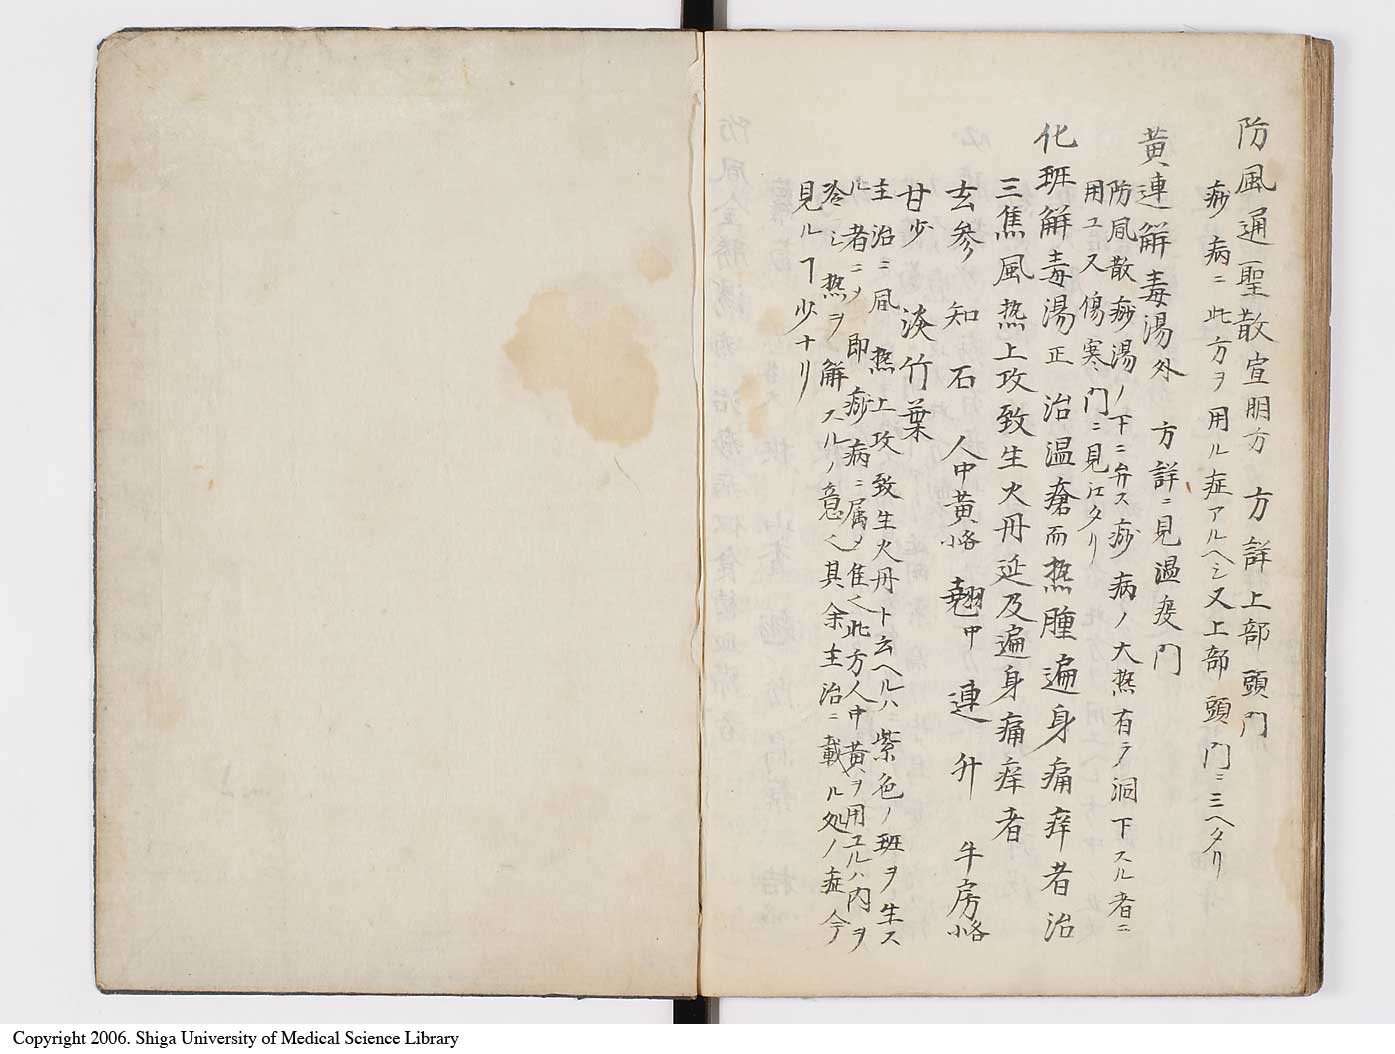 防風通聖散宣明方 方詳上部頭門
痧病ニ此方ヲ用ル症アルヘシ又上部頭門ニ三ヘタリ
黄連解毒湯外 方詳ニ見温疫門
防風散痧湯ノ下ニ弁ス痧病ノ大熱有テ洞下スル者ニ
用ユ又傷寒門ニ見江タリ
化班解毒湯正 治温瘡而熱腫遍身痛痒者治
三焦風熱上攻致生火丹延及遍身痛痒者
玄参 知石 人中黄 翹中 連 升 牛房
甘少 淡竹葉
主治ニ風熱上攻致生火丹ト云ヘルハ紫色ノ班ヲ生ス
ル者ニメ即痧病ニ属メ隹也此方人中黄ヲ用ユルハ内ヲ
冷シ熱ヲ解スルノ意也其余主治ニ載ル処ノ症今
見ルヿ少ナリ
Copyright 2006. Shiga University of Medical Science Library